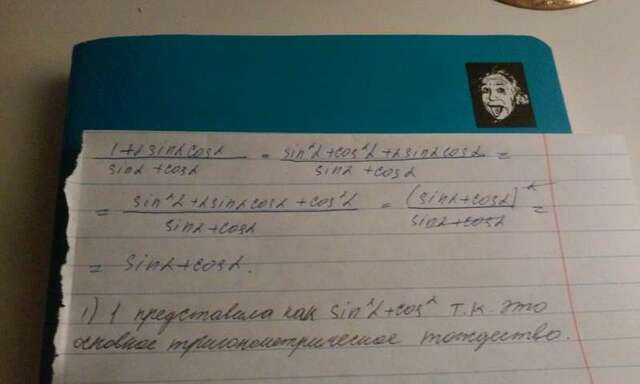 (1+2sinαcosα)/(sinα+cosα) = (sin²α+cos²α+2sinαcosα)/(sinα+cosα) =
= (sin²α+2sinαcosα+cos²α)/(sinα+cosα) = (sinα+cosα)²/(sinα+cosα) =
= sinα+cosα.
1) 1 представила как sin²α+cos² т.к. это
основное тригонометрическое тождество.